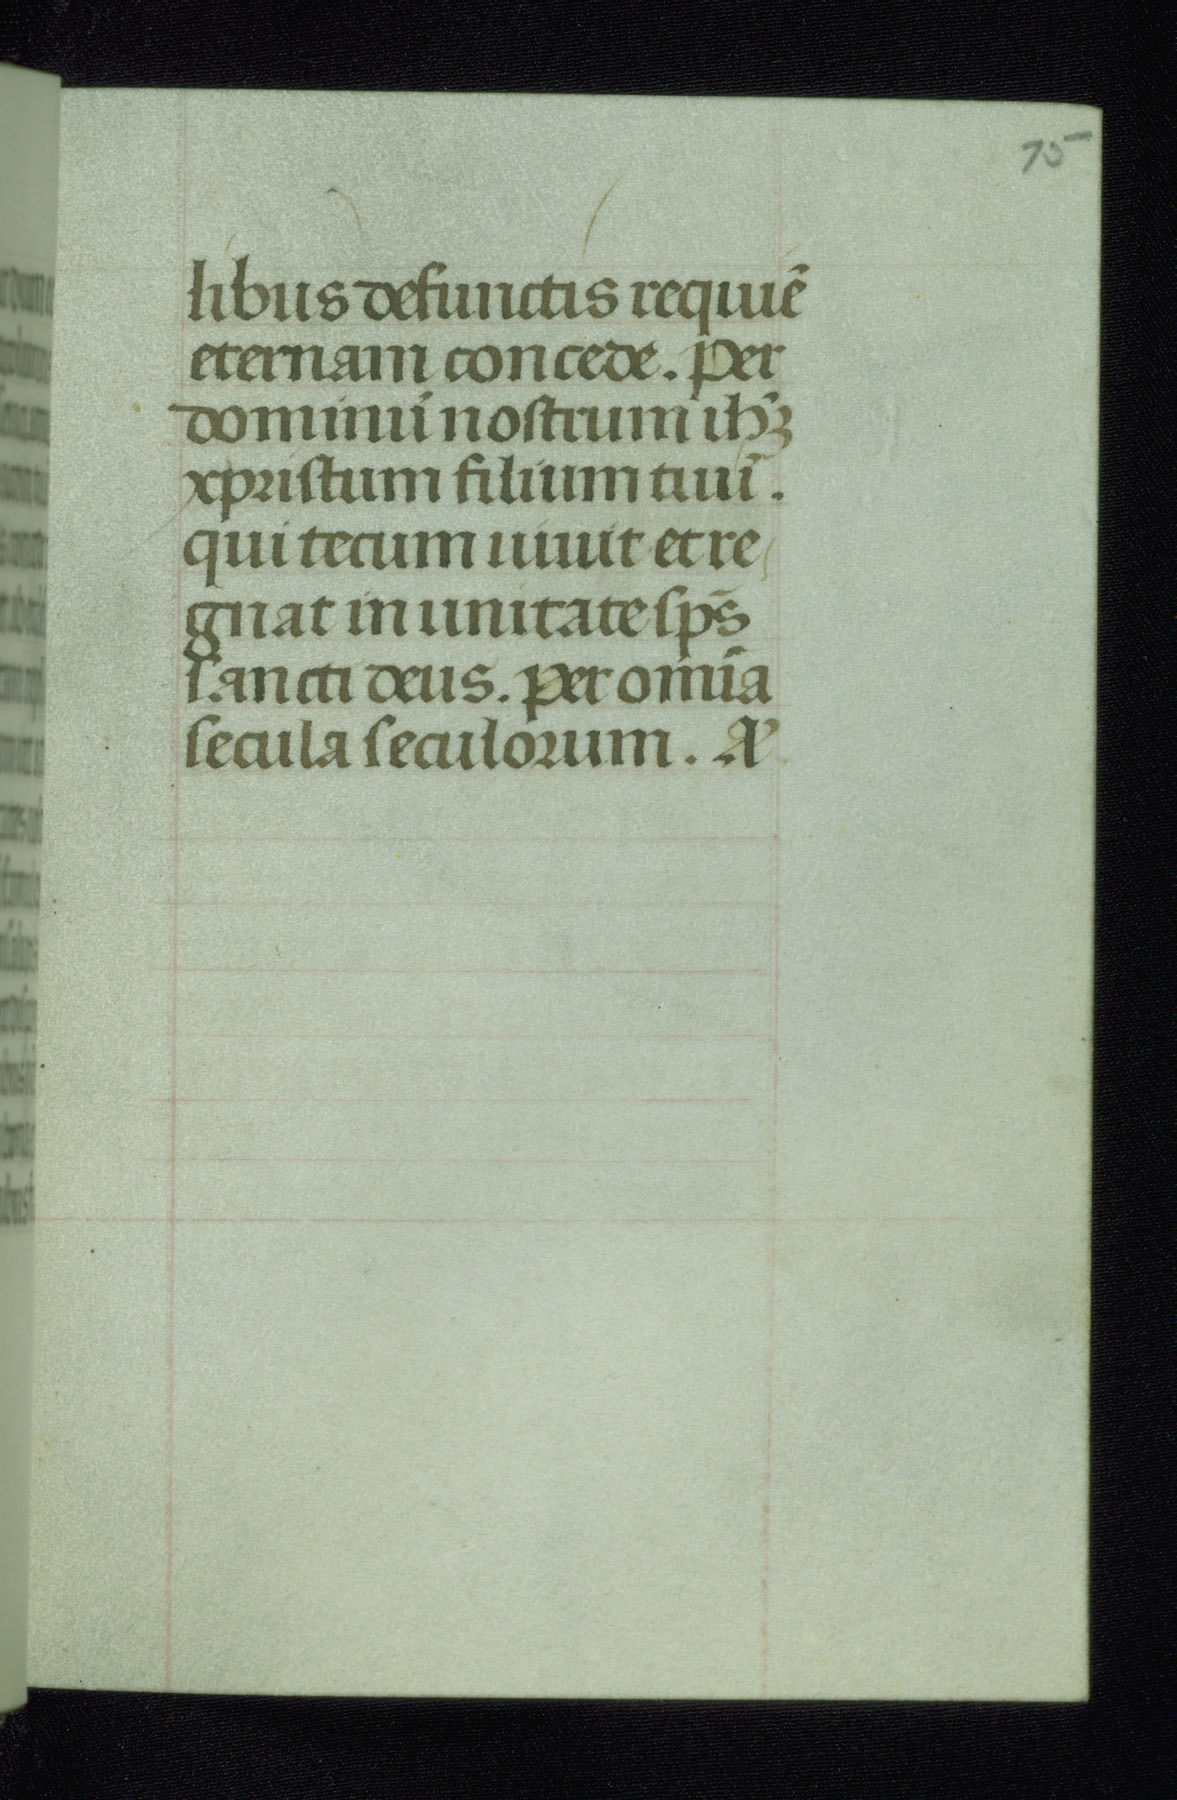 75
libus defunctis requiē
eternam concede. Per
dominū nostrum ih̄ꝫ
xpristum filium tuū.
qui tecum uiuit et re
gnat in unitate sp̄s
sancti deus. Per om̄ia
secula seculorum. A